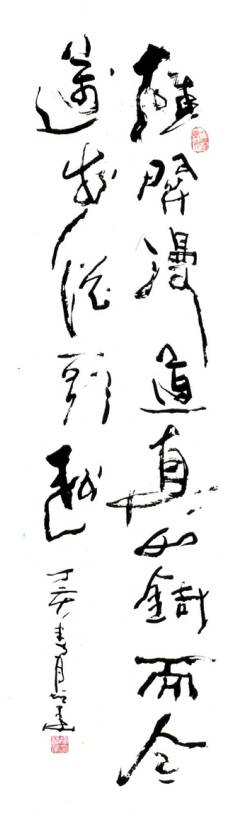 雄關漫道真如鐵而今
邁步從頭越
丁亥春月